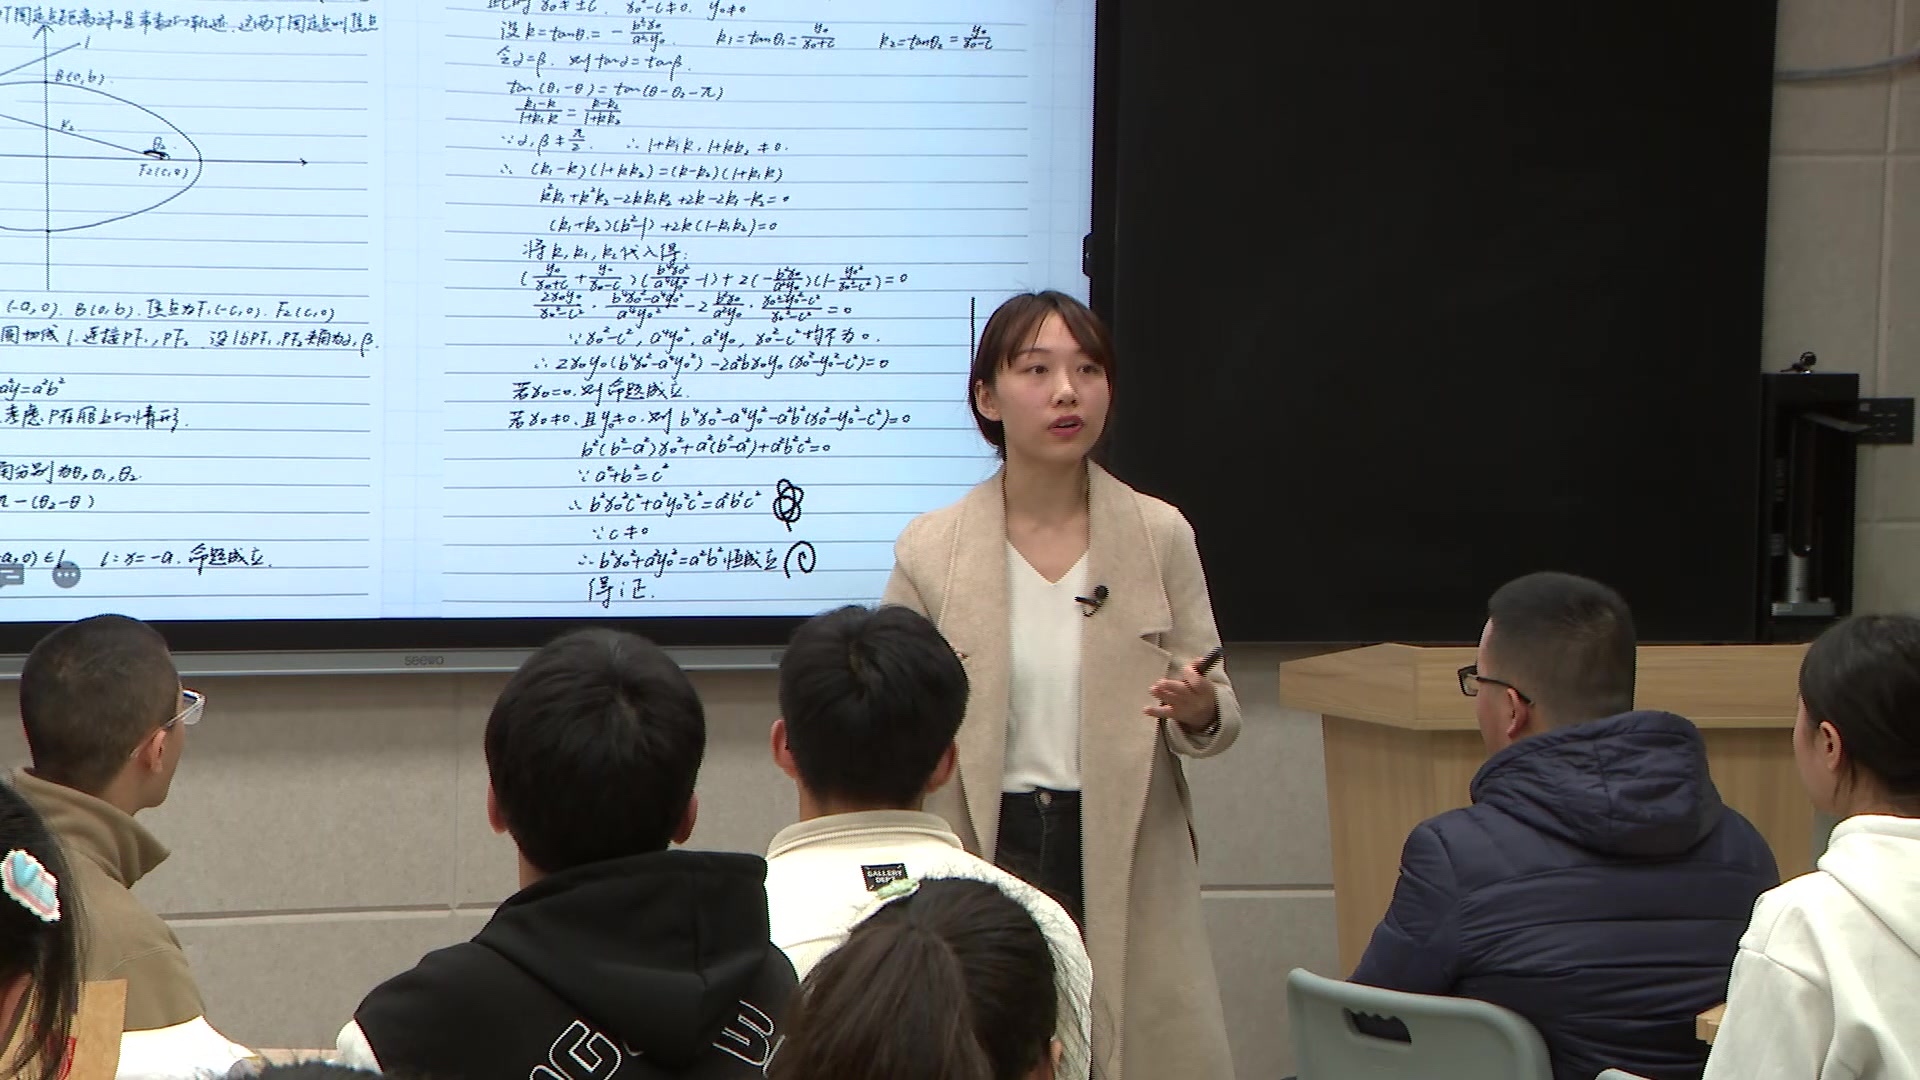 T固定点距离之和是常数的轨迹.这两T固定点叫焦点
l
B(0,b).
k₂
θ₂
F₂(c,0)
(-a,0). B(0,b). 焦点为F₁(-c,0). F₂(c,0)
圆切线 l.连接PF₁,PF₂ 设l与PF₁,PF₂夹角为α,β.
a²y=a²b²
考虑P在l上的情形.
角分别为θ,θ₁,θ₂.
π-(θ₂-θ)
a,0)∈l l:x=-a.命题成立.
此时 x₀≠±c. x₀²-c²≠0. y₀≠0
设k=tanθ=-b²x₀/a²y₀. k₁=tanθ₁=y₀/x₀+c k₂=tanθ₂=y₀/x₀-c
令α=β. 则tanα=tanβ.
tan(θ₁-θ)=tan(θ-θ₂-π)
k₁-k/1+k₁k=k-k₂/1+kk₂
∵α,β≠π/2. ∴1+k₁k,1+kk₂≠0.
∴ (k₁-k)(1+kk₂)=(k-k₂)(1+k₁k)
k²k₁+k²k₂-2kk₁k₂+2k-2k₁-k₂=0
(k₁+k₂)(k²-1)+2k(1-k₁k₂)=0
将k,k₁,k₂代入得:
(y₀/x₀+c+y₀/x₀-c)(b⁴x₀²/a⁴y₀²-1)+2(-b²x₀/a²y₀)(1-y₀²/x₀²-c²)=0
2x₀y₀/x₀²-c²·b⁴x₀²-a⁴y₀²/a⁴y₀²-2b²x₀/a²y₀·x₀²-y₀²-c²/x₀²-c²=0
∵x₀²-c²,a⁴y₀²,a²y₀,x₀²-c²均不为0.
∴2x₀y₀(b⁴x₀²-a⁴y₀²)-2a²b²x₀y₀(x₀²-y₀²-c²)=0
若x₀=0.则命题成立.
若x₀≠0.且y₀≠0.则b⁴x₀²-a⁴y₀²-a²b²(x₀²-y₀²-c²)=0
b²(b²-a²)x₀²+a²(b²-a²)+a²b²c²=0
∵a²+b²=c²
∴b²x₀²c²+a²y₀²c²=a²b²c²
∵c≠0
∴b²x₀²+a²y₀²=a²b²恒成立
得证.
seewo
GALLERY
DEPT.